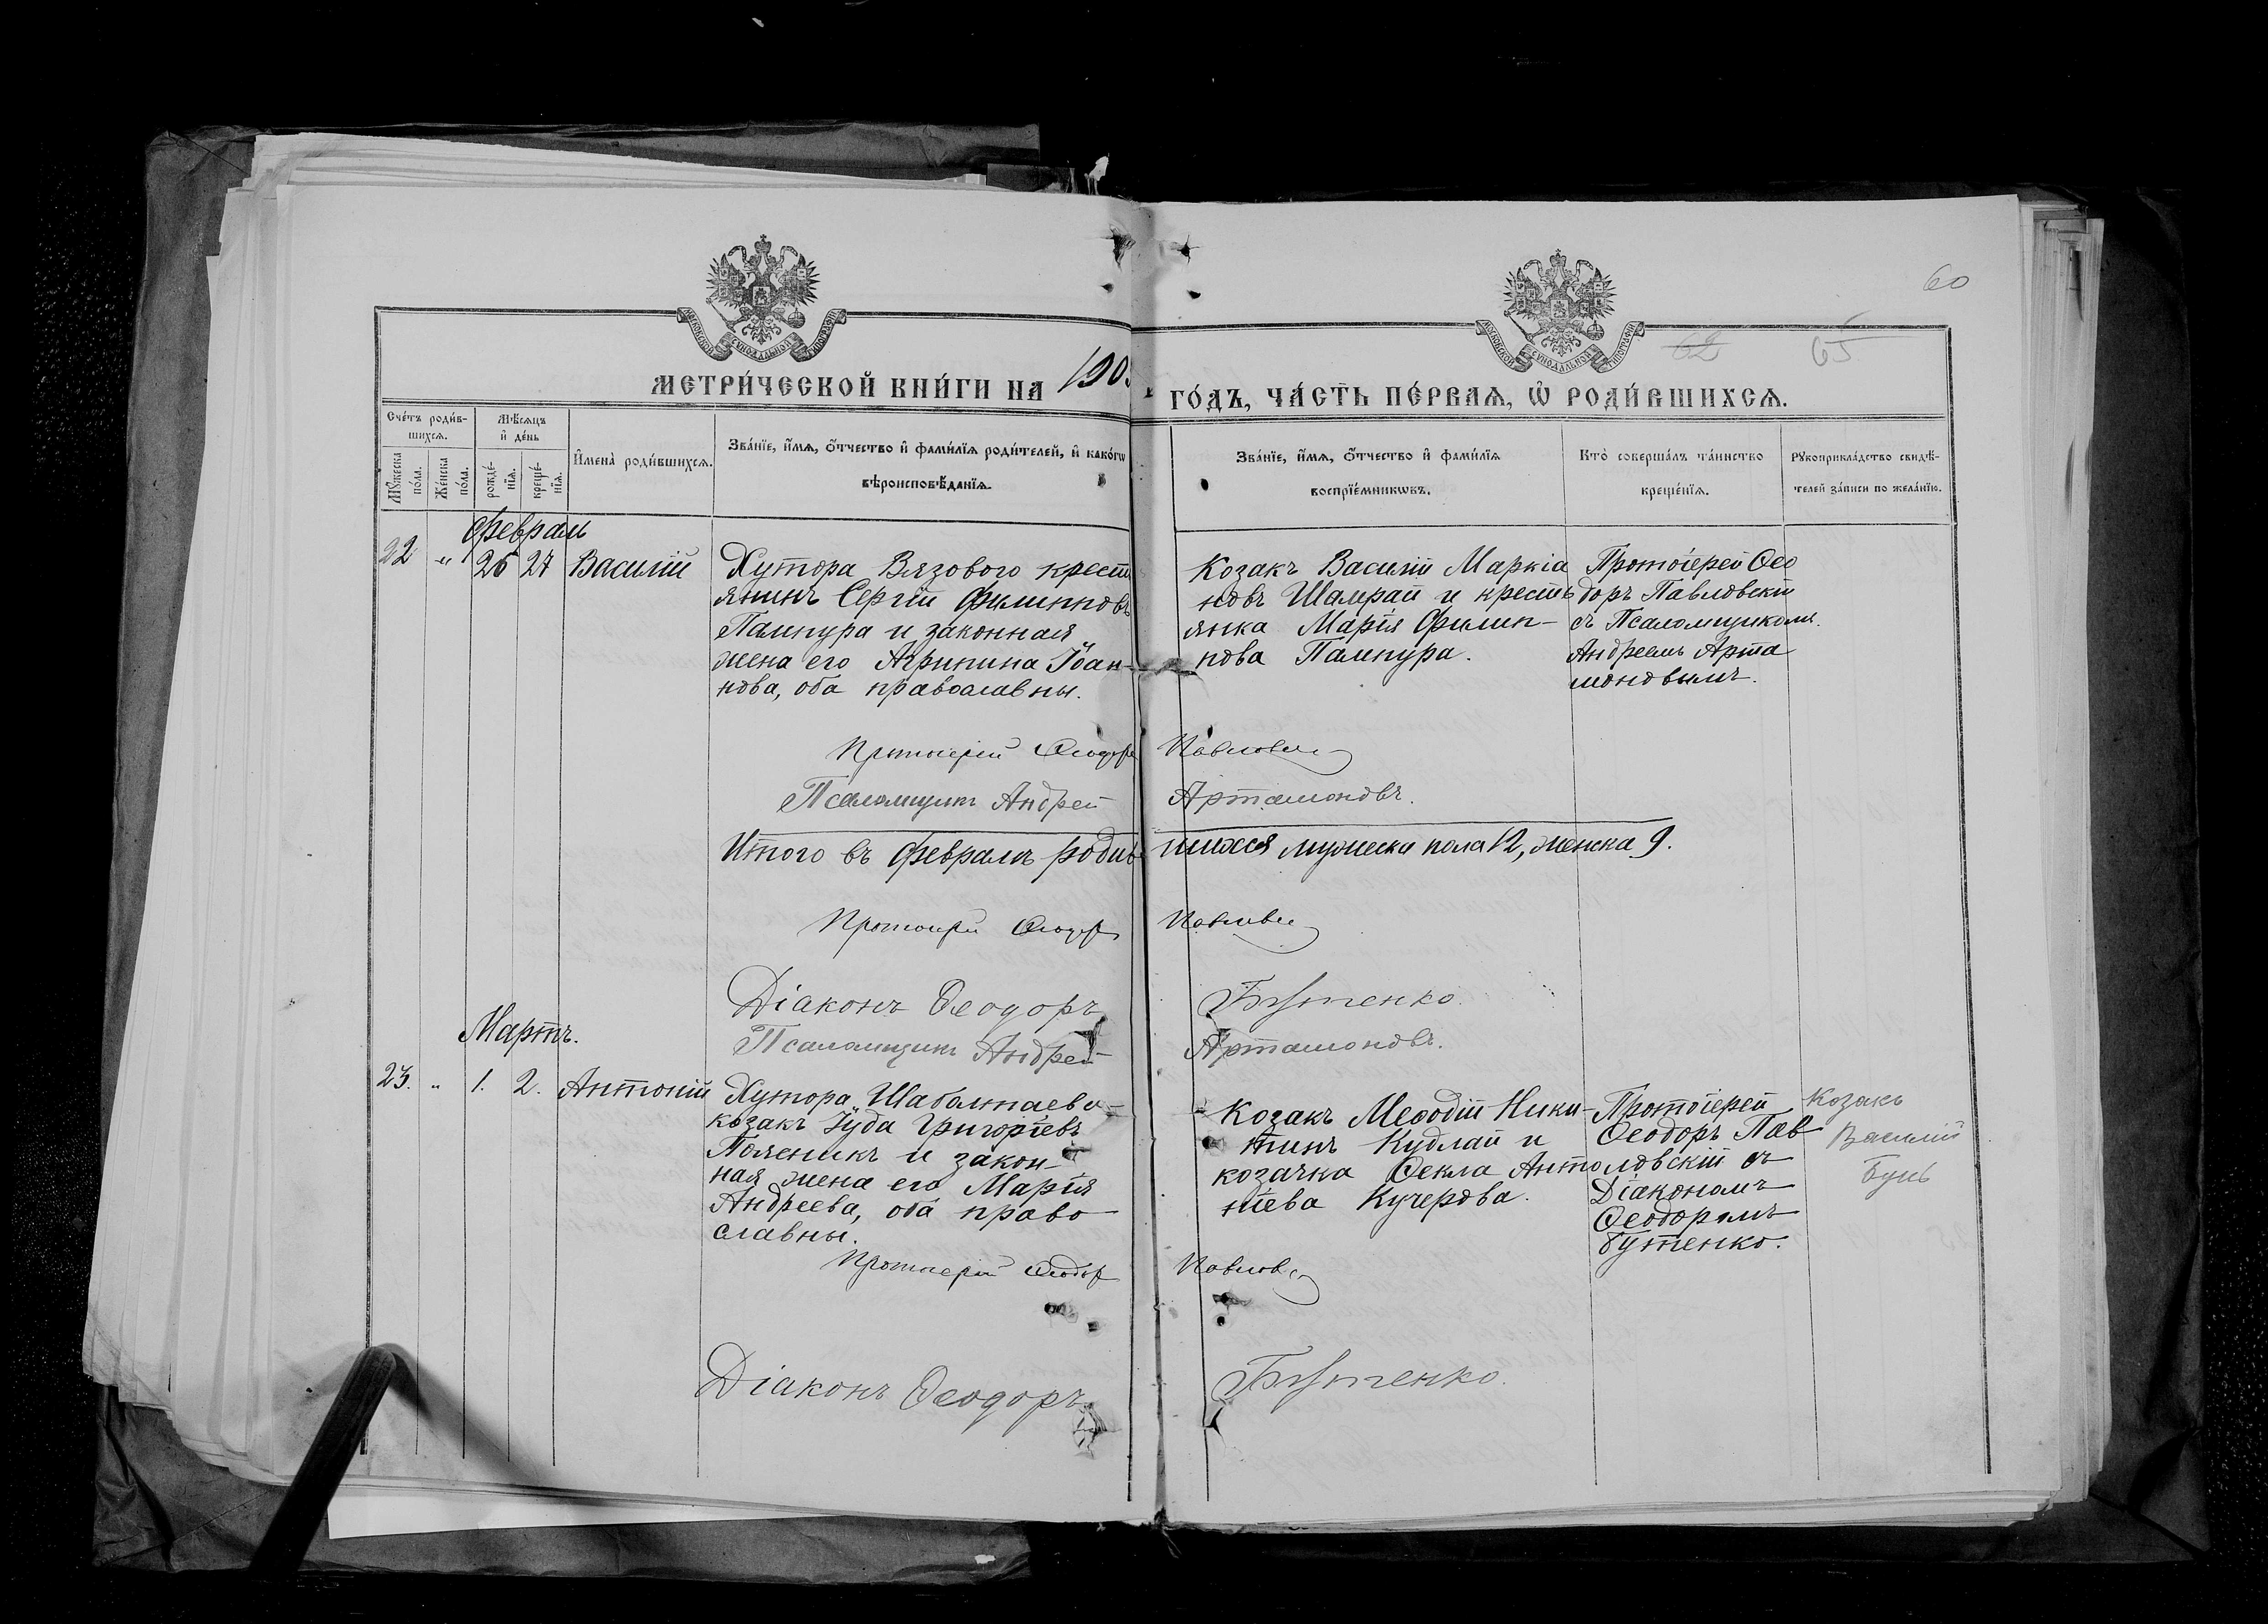 60
62 65
МОСКОВСКОЙ СѴНОДАЛЬНОЙ ТИПОГРАФІИ
МОСКОВСКОЙ СѴНОДАЛЬНОЙ ТИПОГРАФІИ
МЕТРИ́ЧЕСКОЙ КНИ́ГИ НА 190
ГО́ДЪ, ЧА́СТЬ ПЕ́РВАѦ, Ѡ҆ РОДИ́ВШИХСѦ.
Сче́тъ роди́в-
шихсѧ.
Мꙋ́жеска по́ла.
Же́нска по́ла.
Мѣ́сѧцъ
и҆ де́нь
рожде́-
нїѧ.
креще́-
нїѧ.
И҆мена̀ роди́вшихсѧ.
Зва́нїе, и҆́мѧ, ѻ҆́тчество и҆ фами́лїѧ роди́телей, и҆ како́гѡ
вѣроисповѣ́данїѧ.
Зва́нїе, и҆́мѧ, ѻ҆́тчество и҆ фами́лїѧ
воспрїе́мникѡвъ.
Кто̀ соверша́лъ та́инство
креще́нїѧ.
Рꙋкоприкла́дство свидѣ́-
телей за́писи по жела́нїю.
Февраль
22 " 26 27 Василій
Хутора Вязового крестъ
янинъ Сергій Филипповъ
Пампура и законная
жена его Агрипина Іоан-
нова, оба православны.
Козакъ Василій Маркіа
новъ Шамрай и крестъ
янка Марія Филип-
пова Пампура.
Протоіерей Ѳео
доръ Павловскій
съ Псаломщикомъ
Андреемъ Арта
моновымъ.
Протоіерей Ѳеодоръ Павловскій
Псаломщикъ Андрей Артамоновъ.
Итого въ Февралѣ родившихся мужеска пола 12, женска 9.
Протоіерей Ѳеодоръ Павловскій
Діаконъ Ѳеодоръ Бутенко.
Псаломщикъ Андрей Артамоновъ.
Мартъ.
23. " 1. 2. Антоній
Хутора Шабалтаева
козакъ Іуда Григоріевъ
и закон-
ная жена его Марія
Андреева, оба право
славны.
Козакъ Меѳодій Ники-
тинъ Кудлай и
козачка Ѳекла Анто
ніева Кучерова.
Протоіерей
Ѳеодоръ Пав
ловскій съ
Діакономъ
Ѳеодоромъ
Бутенко.
Козакъ
Василій
Бунь
Протоіерей Ѳеодоръ Павловскій
Діаконъ Ѳеодоръ Бутенко.